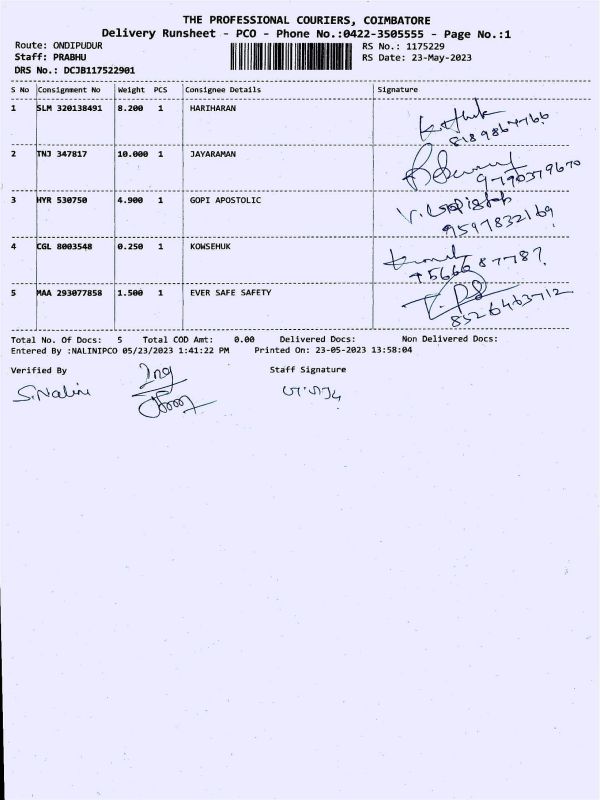 THE PROFESSIONAL COURIERS, COIMBATORE
Delivery Runsheet - PCO - Phone No.:0422-3505555 - Page No.:1
Route: ONDIPUDUR RS No.: 1175229
Staff: PRABHU RS Date: 23-May-2023
DRS No.: DCJB117522901
S No Consignment No Weight PCS Consignee Details Signature
1 SLM 320138491 8.200 1 HARIHARAN
2 TNJ 347817 10.000 1 JAYARAMAN
9790379670
3 HYR 530750 4.900 1 GOPI APOSTOLIC
9597832169
4 CGL 8003548 0.250 1 KOWSEHUK
5 MAA 293077858 1.500 1 EVER SAFE SAFETY
8526463712
Total No. Of Docs: 5 Total COD Amt: 0.00 Delivered Docs: Non Delivered Docs:
Entered By :NALINIPCO 05/23/2023 1:41:22 PM Printed On: 23-05-2023 13:58:04
Verified By Staff Signature
S.Nalini